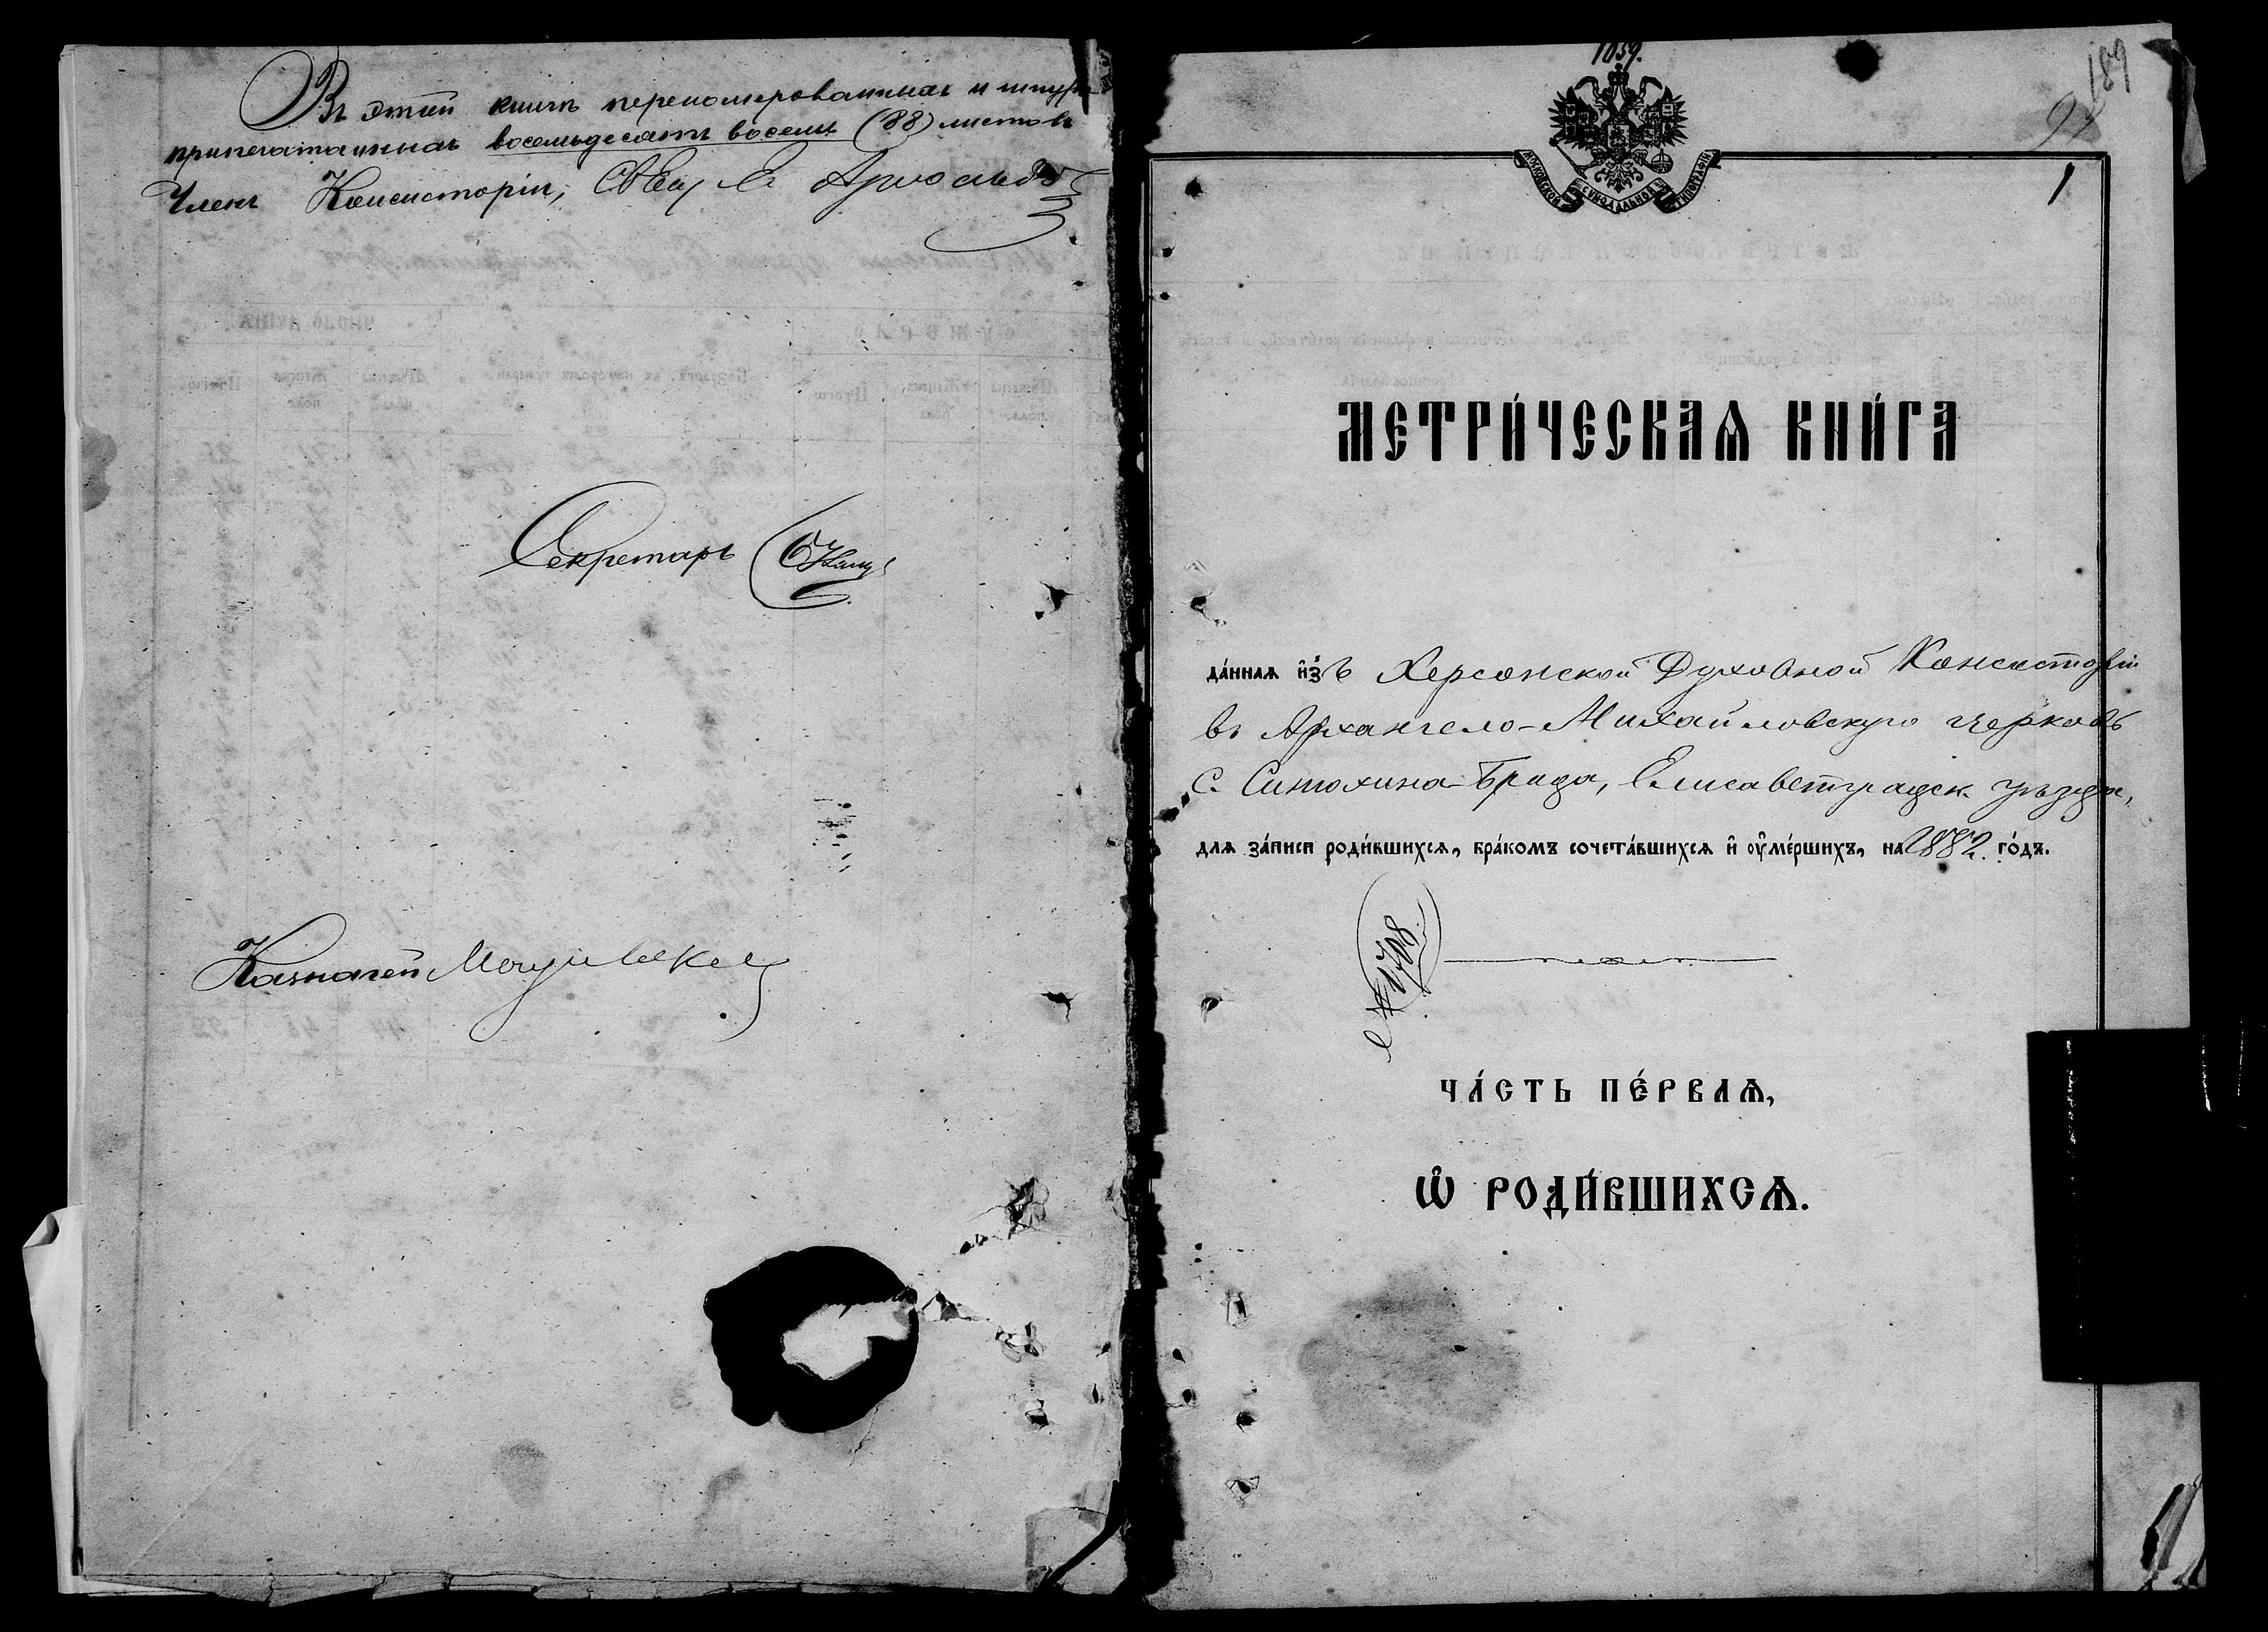 Въ этой книгѣ переномерованныхъ и шнуро
припечатанныхъ восемьдесятъ восемь (88) листовъ
Членъ Консисторіи,
Секретарь
Казначей
1059.
189
МОСКОВСКОЙ СѴНОДАЛЬНОЙ ТИПОГРАФІИ
1
МЕТРИ́ЧЕСКАѦ КНИ́ГА
да́ннаѧ и҆зъ Херсонской Духовной Консисторіи
въ Архангело-Михайловскую церковь
с. Синюхина-Брода, Елисаветградск. уѣзда,
для за́писи роди́вшихсѧ, бра́комъ сочета́вшихсѧ и҆ ѹ҆ме́ршихъ, на 1882. го́дъ.
№ 1708.
ЧА́СТЬ ПЕ́РВАѦ,
Ѽ РОДИ́ВШИХСѦ.